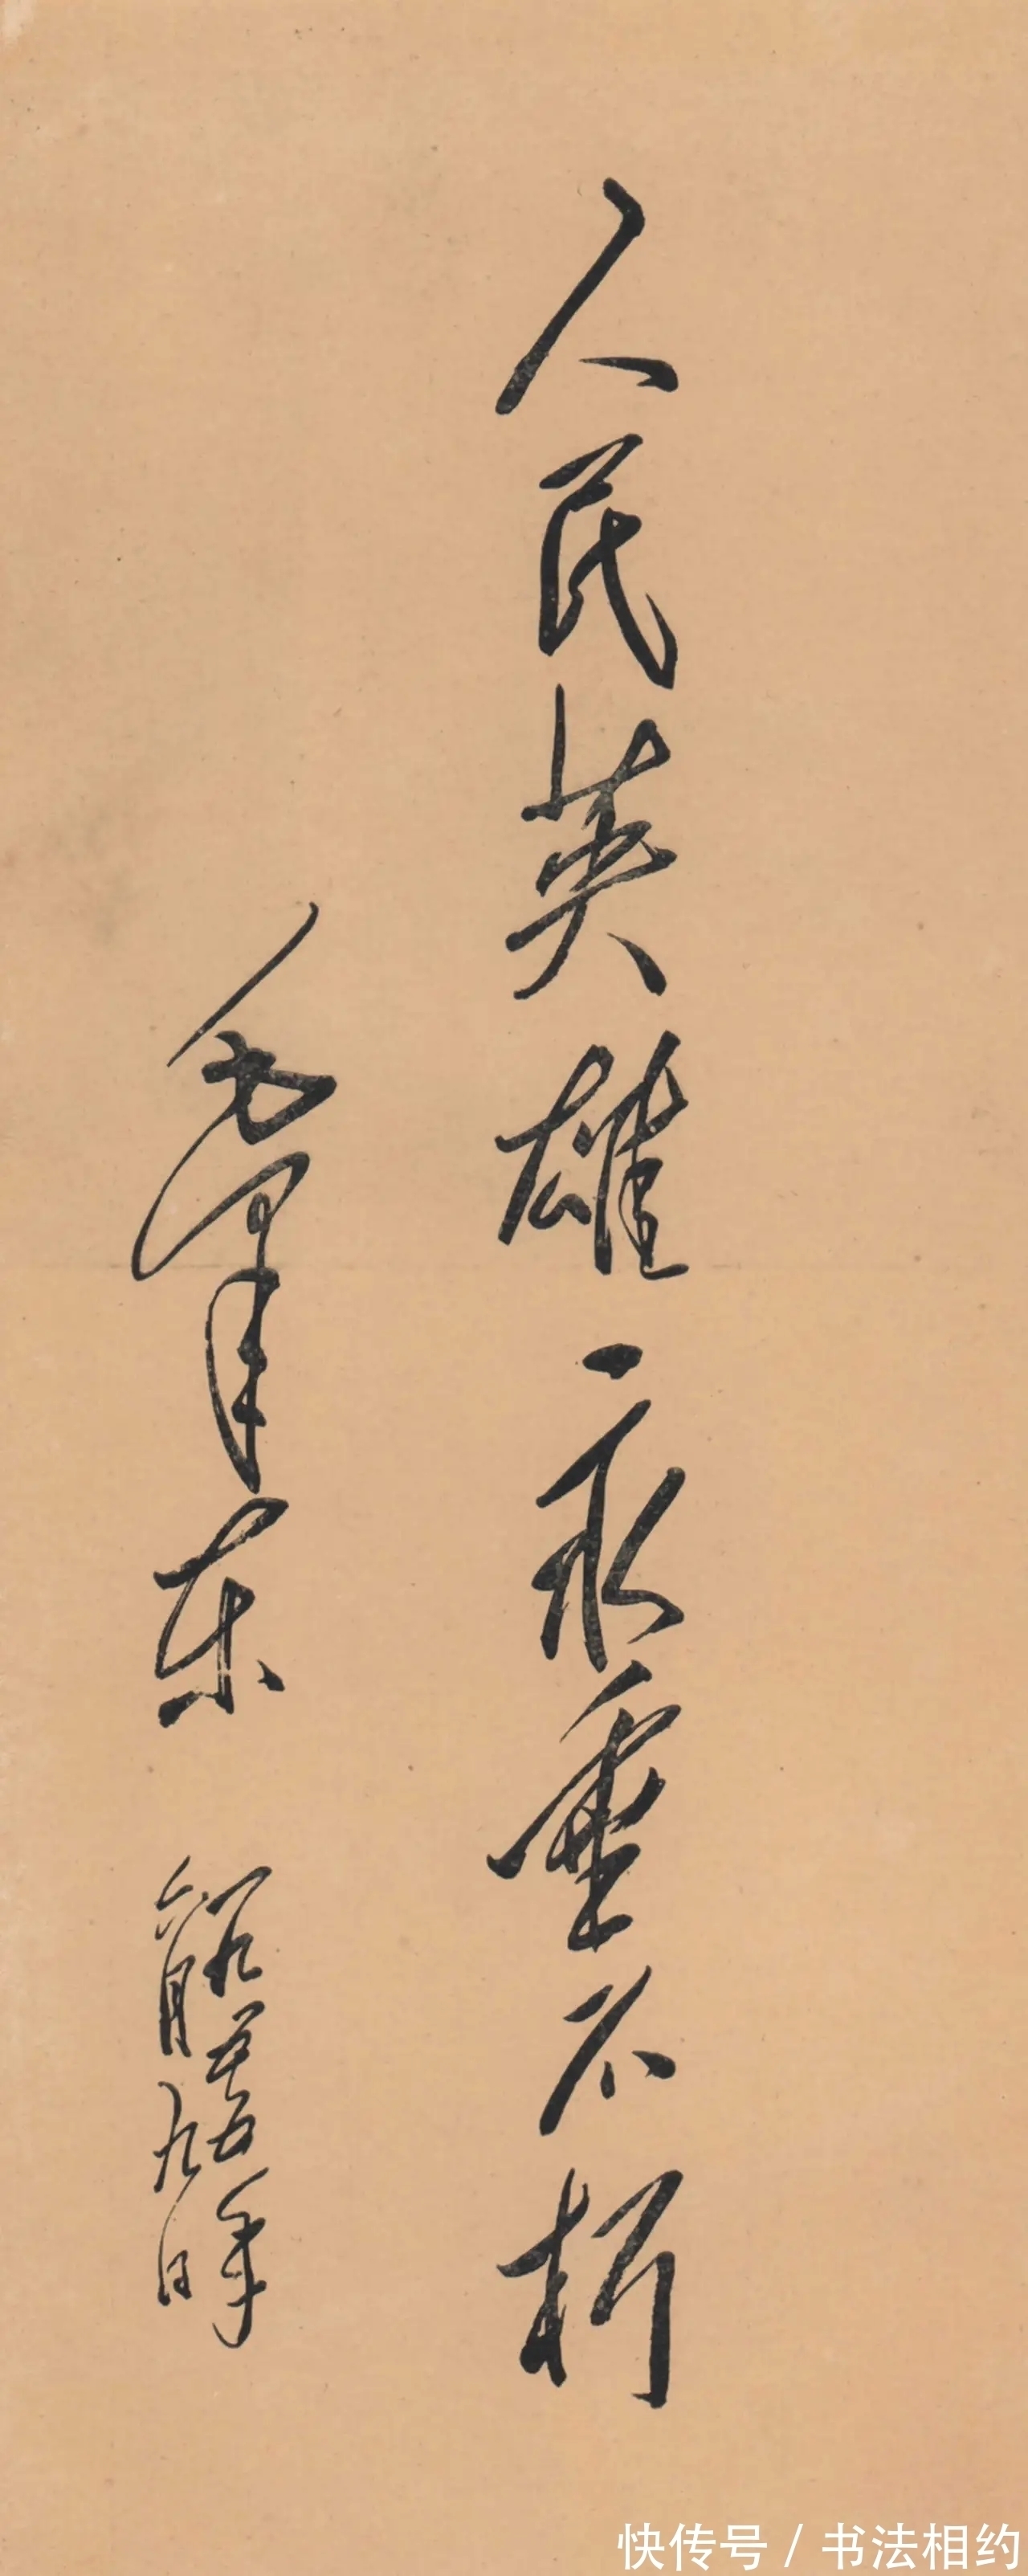 人民英雄永垂不朽
毛泽东
一九五五年
六月九日
快传号 / 书法相约